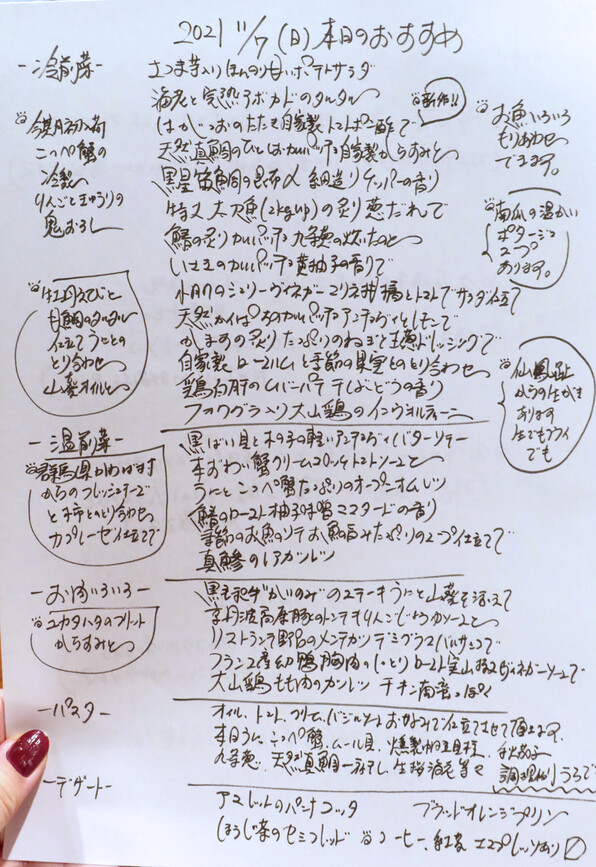 2021 11/7 (日) 本日のおすすめ
-冷前菜-
さつま芋入りほんのり甘いポテトサラダ
海老と完熟アボカドのタルタル
新作!!
はがつおのたたき自家製トマトぽん酢で
天然真鯛のひとはカルパッチョ自家製からすみと
黒星笛鯛の昆布〆 細造りケッパーの香り
特大 太刀魚(2kgup)の炙り葱だれで
鯖の炙りカルパッチョ九条葱の炊いたのと
いさきのカルパッチョ黄柚子の香りで
小肌のシェリーヴィネガーマリネ 柿とトマトでサラダ仕立て
かますの炙りたっぷりのねぎと ドレッシングで
自家製ロースハムと季節の果実とのとり合わせ
鶏白肝のムースパテ ぶどうの香り
フォワグラ入り大山鶏のインヴォルティーニ
今期初入荷
こっぺ蟹の
冷製
りんごときゅうりの
鬼おろし
牡丹えびと
甘鯛のタルタル
仕立てうにとの
とり合わせ
山葵オイルと
お魚いろいろ
もりあわせ
できます。
南瓜の温かい
ポタージュ
スープ
あります。
仙鳳趾
からの生がき
あります
生でもフライ
でも
-温前菜-
黒ばい貝と木の子の軽い バターソテー
本ずわい蟹クリームコロッケトマトソースと
うにとこっぺ蟹たっぷりのオープンオムレツ
鰆のロースト柚子味噌マスタードの香り
季節のお魚のソテお魚の旨みたっぷりのスープ仕立てで
真鯵のレアカツレツ
群馬県川場村
からのフレッシュチーズ
と柿とのとり合わせ
カプレーゼ仕立てで
-お肉いろいろ-
黒毛和牛“かいのみ”のステーキうにと山葵を添えて
京丹波高原豚のトンテキりんごじょうゆソースと
リストランテ野呂のメンチカツデミグラスバルサミコで
フランス産幼鴨胸肉のしっとりロースト実山椒ヴィネガーソースで
大山鶏もも肉のカツレツ チキン南蛮っぽく
ユカタハタのフリット
からすみと
-パスタ-
オイル、トマト、クリーム、バジルソースお好みで仕立てさせて頂きます。
本日うに、こっぺ蟹、ムール貝、燻製 秋茄子
九条葱、天然真鯛 生桜海老等々
調理 りうろで
-デザート-
アマレットのパンナコッタ ブラッドオレンジプリン
ほうじ茶のセミフレッド コーヒー、紅茶 エスプレッソあり